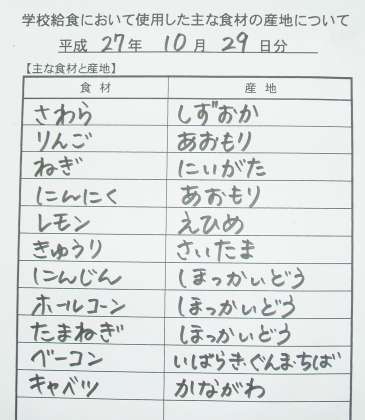 学校給食において使用した主な食材の産地について
平成 27年 10月 29日分
【主な食材と産地】
食材 産地
さわら しずおか
りんご あおもり
ねぎ にいがた
にんにく あおもり
レモン えひめ
きゅうり さいたま
にんじん ほっかいどう
ホールコーン ほっかいどう
たまねぎ ほっかいどう
ベーコン いばらき・ぐんま・ちば
キャベツ かながわ